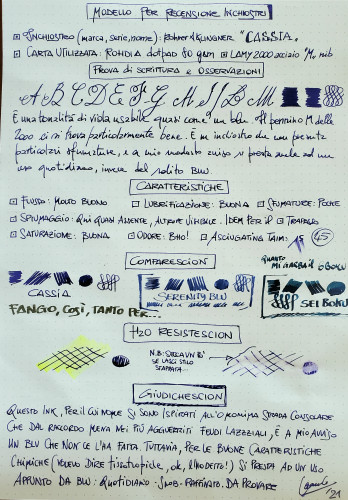 MODELLO PER RECENSIONE INCHIOSTRI
INCHIOSTRO (marca, serie, nome): ROHRER & KLINGNER "CASSIA"
CARTA UTILIZZATA: RHODIA dotpad 80 gsm LAMY 2000 acciaio M nib
PROVA DI SCRITTURA E OSSERVAZIONI
A B C D E F G H I L M
È una tonalità di viola usabile quasi come un blu. Il pennino M della
2000 ci si trova particolarmente bene. È un inchiostro che non presenta
particolari sfumature, e a mio modesto avviso si presta anche ad un
uso quotidiano, invece del solito BLU.
CARATTERISTICHE
FLUSSO: MOLTO BUONO LUBRIFICAZIONE: BUONA SFUMATURE: POCHE
SPIUMAGGIO: QUI QUASI ASSENTE, ALTROVE VISIBILE. IDEM PER IL TRAPASSO
SATURAZIONE: BUONA ODORE: BHO! ASCIUGATING TAIM: 15 45
COMPARESCION
QUANTO MI GARBA IL KOBOKU
CASSIA
SERENITY BLU
SEI BOKU
FANGO, COSÌ, TANTO PER...
H2O RESISTESCION
N.B: SECCA UN PO'
SE LASCI STILO
STAPPATA...
GIUDICHESCION
QUESTO INK, PER IL CUI NOME SI SONO ISPIRATI ALL'OMONIMA STRADA CONSOLARE
CHE DAL RACCORDO MENA NEI PIÙ AGGUERRITI FEUDI LAZZIALI, È A MIO AVVISO
UN BLU CHE NON CE L'HA FATTA. TUTTAVIA, PER LE BUONE CARATTERISTICHE
CHIMICHE (VOLEVO DIRE TISSOTROPICHE, OK, L'HO DETTO!) SI PRESTA AD UN USO
APPUNTO DA BLU: QUOTIDIANO - SNOB - RAFFINATO. DA PROVARE
'21